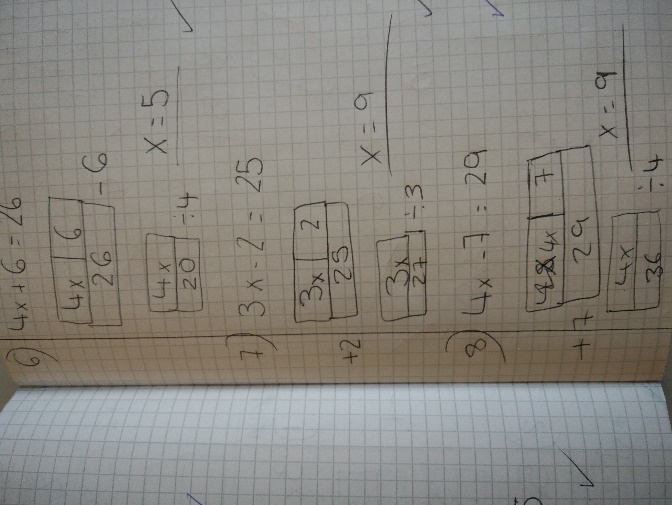 6) 4x + 6 = 26
4x 6
26 - 6
4x
20 ÷4
x = 5
7) 3x - 2 = 25
3x 2
+2 25
3x
27 ÷3
x = 9
8) 4x - 7 = 29
4x 7
+7 29
4x
36 ÷4
x = 9